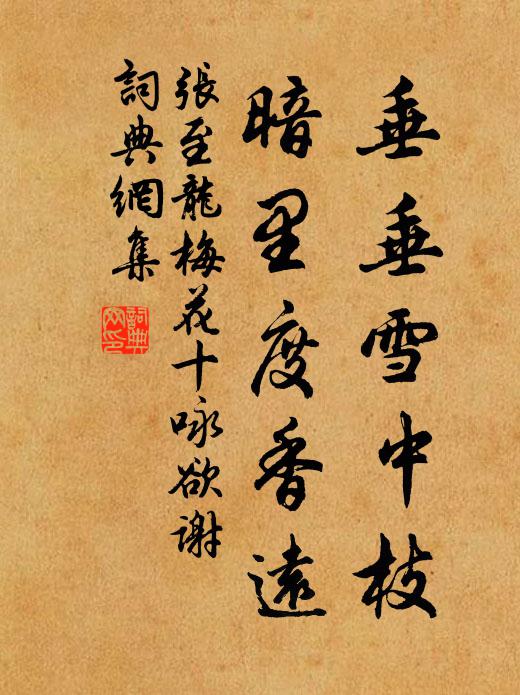 垂垂雪中枝
暗里度香遠
張至龍梅花十咏欲謝
詞典網集
詞典網印